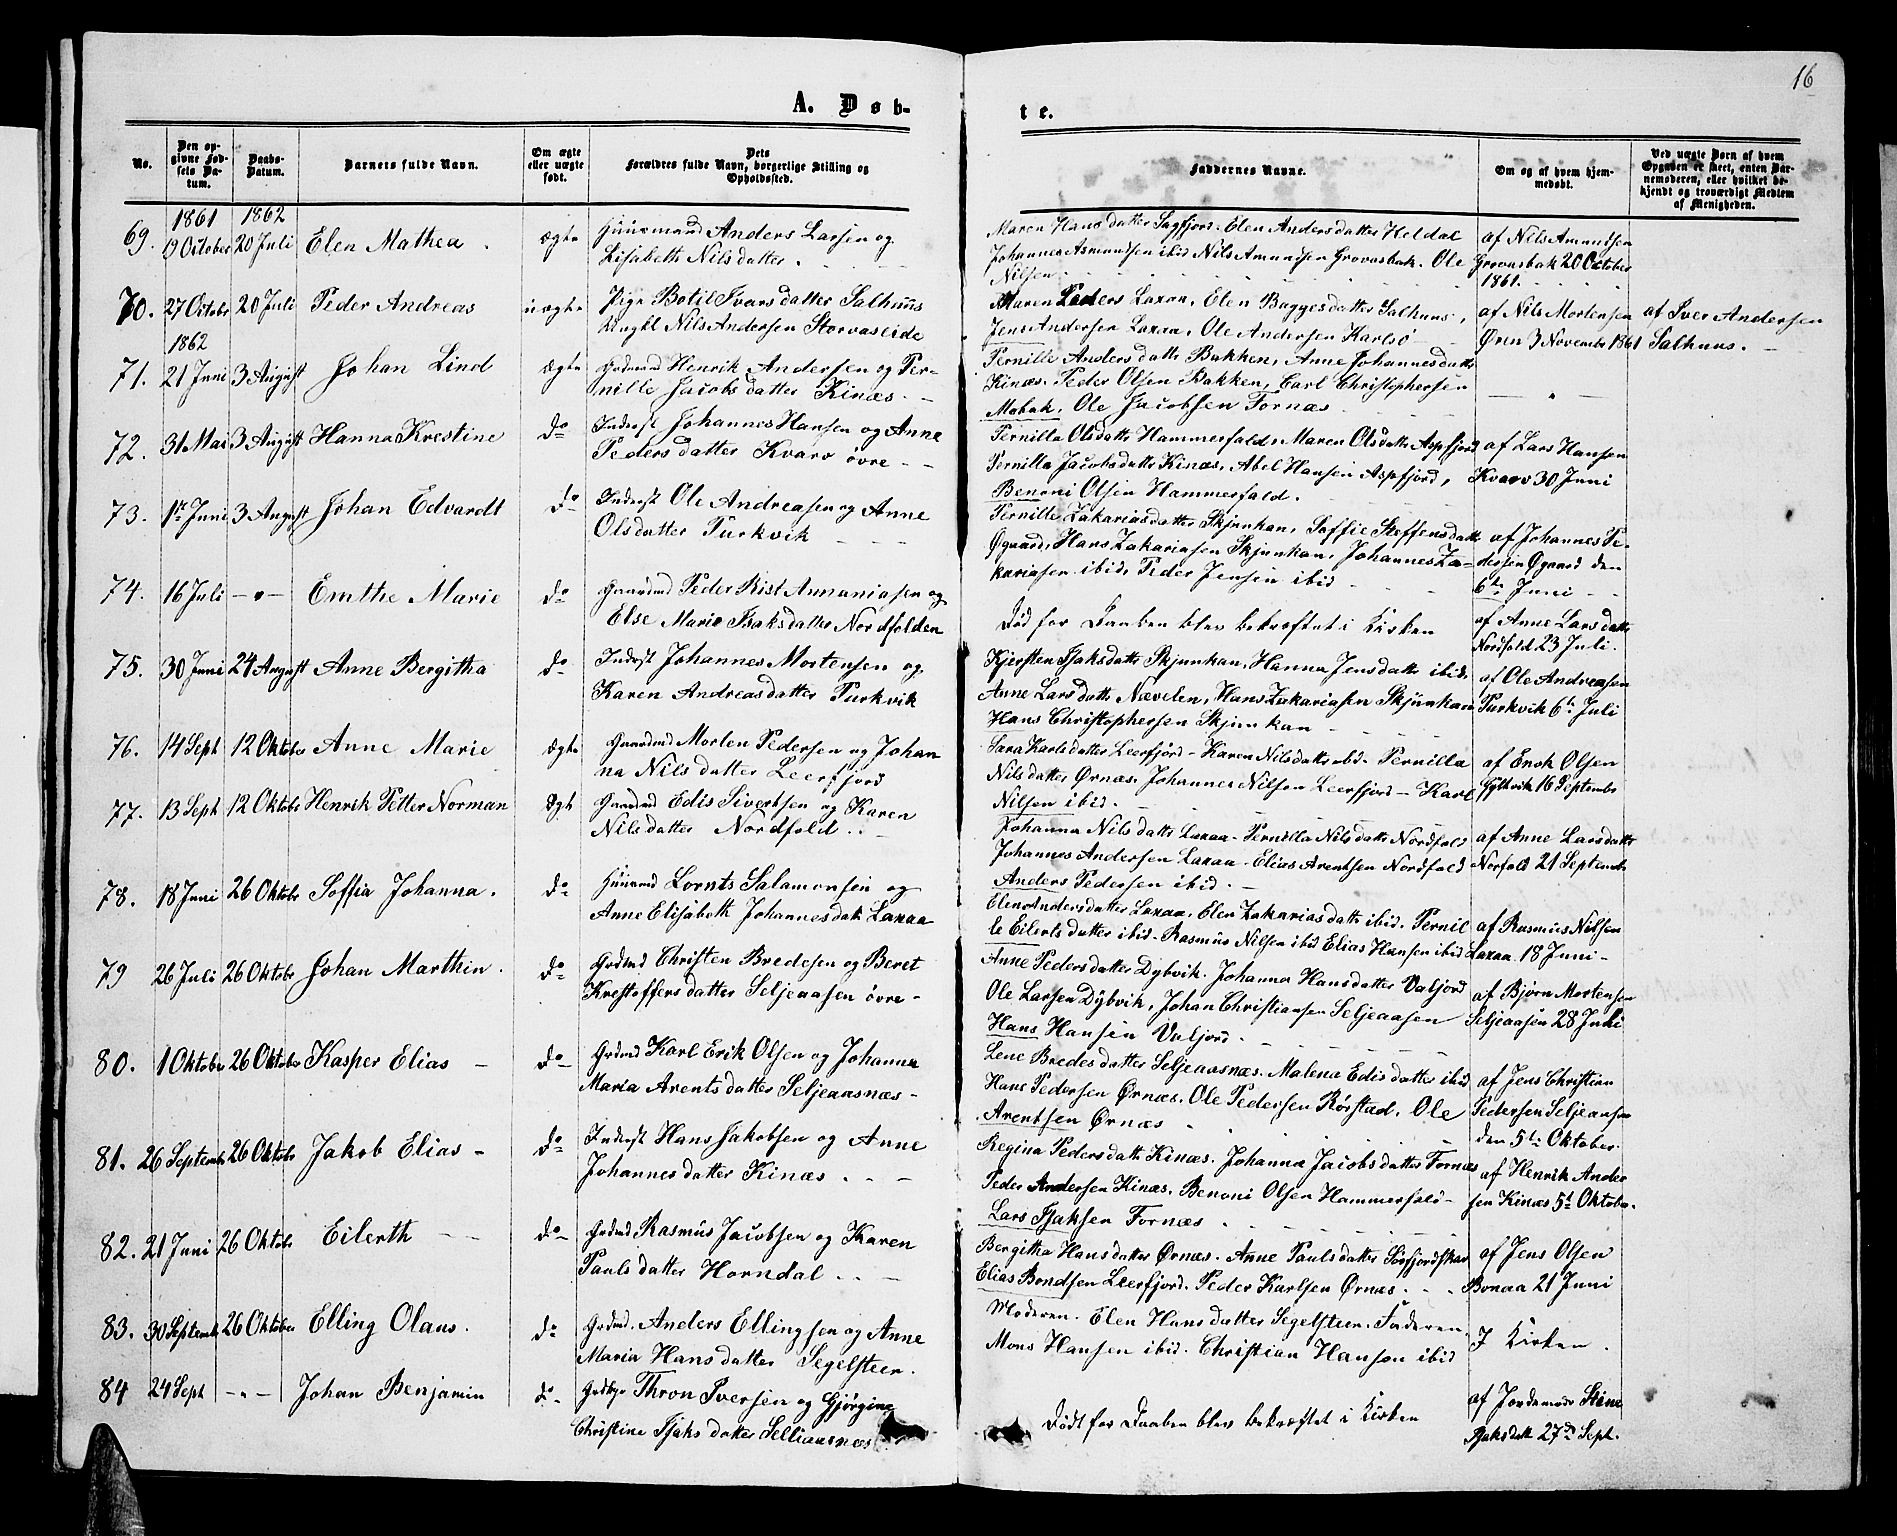 16
A. Døb-
te.
No.
Den op-
givne Fød-
sels Da-
tum.
Daabs-
Datum.
Barnets fulde Navn.
Om ægte
eller uægte
født.
Dets
Forældres fulde Navn, borgerlige Stilling og
Opholdssted.
Faddernes Navne.
Om og af hvem hjem-
medøbt.
Ved uægte Børn af hvem
Opgaven er skeet, enten Bar-
nemoderen, eller hvilket be-
kjendt og troværdigt Medlem
af Menigheden.
1861 1862
69. 19 October 20 Juli Elen Mathea. ægte Huusmand Anders Larsen og
Lisabeth Nilsdatter.
Maren Hansdatter Sagfjord. Elen Andersdatter Heldal
Johannes Asmundsen ibid Nils Amundsen Grovasbak. Ole
Nilsen
af Nils Amundsen
Grovasbak 20 October
1861.
70. 27 Octobr 20 Juli Peder Andreas uægte Pige Botil Ivarsdatter Salhuus
Ungkl Nils Andersen Storvaseide
Maren Peders Laxaa, Elen Baggesdatter Salhuus,
Jens Andersen Laxaa, Ole Andersen Karlsø
af Nils Mortensen
Øren 3 Novembr 1861
af Iver Andersen
Salhuus.
1862
71. 21 Juni 3 August Johan Lind ægte Gadmd Henrik Andersen og Per-
nille Jacobsdatter Kinæs.
Pernille Andersdatter Bakken, Anne Johannesdatter
Kinæs. Peder Olsen Bakken, Carl Christophersen
Mobak, Ole Jacobsen Fornæs
72. 31 Mai 3 August Hanna Krestine do Inderst Johannes Hansen og Anne
Pedersdatter Kvarv øvre
Pernilla Olsdatter Hammerfald, Maren Olsdatter Aspfjord
Pernilla Jacobsdatter Kinæs, Abel Hansen Aspfjord,
Benoni Olsen Hammerfald.
af Lars Hansen
Kvarv 30 Juni
73. 1ste Juni 3 August Johan Edvardt do Inderst Ole Andreasen og Anne
Olsdatter Purkvik
Pernille Zakariasdatter Skjunkan, Soffie Steffensdatt
Øgaard, Hans Zakariasen Skjunkan, Johannes Za-
kariasen ibid, Peder Jensen ibid
af Johannes Pe-
dersen Øgaard den
6te Juni
74. 16 Juli -"- Emthe Marie do Gaardmd Peder Rist Annaniasen og
Else Marie Isaksdatter Nordfolden
Død før Daaben blev bekræftet i Kirken
af Anne Larsdatter
Nordfold 23 Juli.
75. 30 Juni 24 August Anne Bergitha do Inderst Johannes Mortensen og
Karen Andreasdatter Purkvik
Kjersten Isaksdatter Skjunkan, Hanna Jensdatter ibid.
Anne Larsdatter Nævelen, Hans Zakariasen Skjunkan
Hans Christophersen Skjunkan
af Ole Andreasen
Purkvik 6te Juli
76. 14 Sept 12 Oktober Anne Marie ægte Gaardmd Morten Pedersen og Johan
na Nilsdatter Leerfjord
Sara Karlsdatter Leerfjord - Karen Nilsdatter ibd. Pernilla
Nilsdatter Ørnæs. Johannes Nilsen Leerfjord - Karl
Nilsen ibid.
af Enok Olsen
16 Septembr
77. 13 Sept 12 Oktobr Henrik Petter Norman Ægt Gaardmd Edis Sivertsen og Karen
Nilsdatter Nordfold.
Johanna Nilsdatter Laxaa - Pernilla Nilsdatter Nordfold
Johannes Andersen Laxaa - Elias Arentsen Nordfold
Anders Pedersen ibid.
af Anne Larsdatter
Norfold 21 Septembr
78. 18 Juni 26 Oktobr Soffia Johanna. do Huusmd Lornts Salamonsen og
Anne Elisabeth Johannesdatt Laxaa
Elen Andersdatter Laxaa, Elen Zakariasdatter ibid. Pernil
le Eilertsdatter ibid. Rasmus Nilsen ibid Elias Hansen ibid
af Rasmus Nilsen
Laxaa. 18 Juni -
79 26 Juli 26 Oktobr Johan Marthin. do Grdmd Christen Bredesen og Beret
Krestoffersdatter Seljeaasen øvre -
Anne Pedersdatter Dybvik. Johanna Hansdatter Valjord
Ole Larsen Dybvik, Johan Christiansen Seljeaasen
Hans Hansen Valjord.
af Bjørn Mortensen
Seljeaasen 28 Juli
80. 1 Oktober 26 Oktober Kasper Elias - do Grdmd Karl Erik Olsen og Johanna
Maria Arentsdatter Seljeaasnæs -
Lene Bredesdatter Seljeaasnæs. Malena Edisdatter ibid
Hans Pedersen Ørnæs. Ole Pedersen Rørstad. Ole
Arentsen Ørnæs
af Jens Christian
Pedersen Seljeaasen
den 5te Oktober
81. 26 Septembr 26 Oktobr Jakob Elias - do Inderst Hans Jakobsen og Anne
Johannesdatter Kinæs.
Regina Pedersdatter Kinæs. Johanna Jacobsdatter Fornæs
Peder Andersen Kinæs. Benoni Olsen Hammerfald -
Lars Isaksen Fornæs
af Henrik Ander
sen Kinæs 5te Oktober.
82. 21 Juni 26 Oktobr Eilerth do Grdmd Rasmus Jacobsen og Karen
Paulsdatter Horndal.
Bergitha Hansdatter Ørnæs. Anne Paulsdatter Sørfjordskar
Elias Bendtsen Leerfjord. Peder Karlsen Ørnæs.
af Jens Olsen
Bonaa 21 Juni
83. 30 Septembr 26 Oktober Elling Olaus. do Grdmd. Anders Ellingsen og Anne
Maria Hansdatter Segelsteen.
Moderen. Elen Hansdatter Segelsteen. Faderen.
Mons Hansen ibid. Christian Hansen ibid
I Kirken.
84 24 Sept -"- Johan Benjamin do Grdbgr Thron Iversen og Gjørgine
Christine Isaksdatter Selliaasnæs
Dødt før Daaben blev bekræftet i Kirken
af Jordemoder Stine
Isaksdatt 27de Sept.